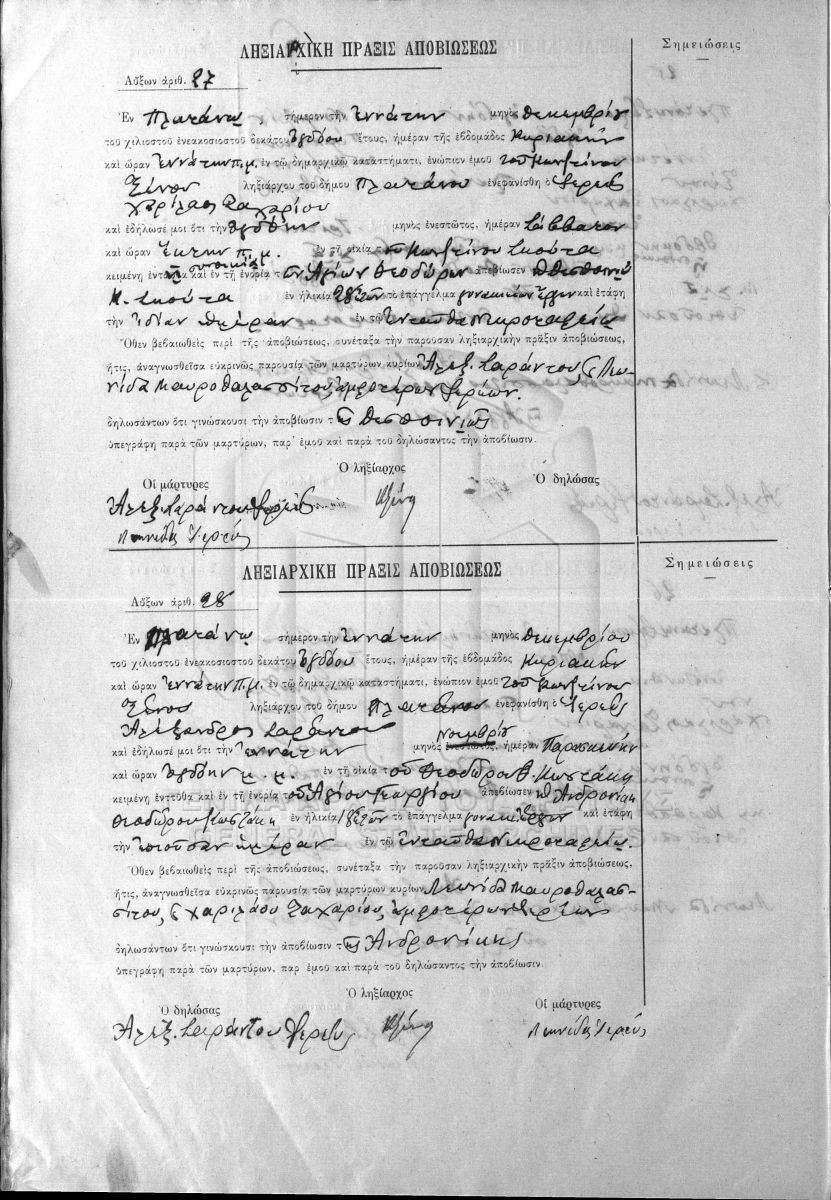 ΛΗΞΙΑΡΧΙΚΗ ΠΡΑΞΙΣ ΑΠΟΒΙΩΣΕΩΣ
Σημειώσεις
Αὔξων ἀριθ. 27
Ἐν Πλατάνῳ σήμερον τὴν ἐννάτην μηνὸς Δεκεμβρίου
τοῦ χιλιοστοῦ ἐνεακοσιοστοῦ δεκάτου ὀγδόου ἔτους, ἡμέραν τῆς ἑβδομάδος Κυριακὴν
καὶ ὥραν ἐννάτην π.μ. ἐν τῷ δημαρχικῷ καταστήματι, ἐνώπιον ἐμοῦ τοῦ Κωνστίνου
Ξένου ληξιάρχου τοῦ δήμου Πλατάνου ἐνεφανίσθη ὁ ἱερεὺς
Χαρίλαος Ζαχαρίου
καὶ ἐδήλωσέ μοι ὅτι τὴν ὀγδόην μηνὸς ἐνεστῶτος, ἡμέραν Σάββατον
καὶ ὥραν ἕκτην π.μ. ἐν τῇ οἰκίᾳ τοῦ Κωνστίνου Σκούτα
κειμένη καὶ ἐν τῇ ἐνορίᾳ τῶν Ἁγίων Θεοδώρων ἀπεβίωσεν ἡ Δεσποινιὼ
Κ. Σκούτα ἐν ἡλικίᾳ ἐτῶν τὸ ἐπάγγελμα γυναικείων ἔργων καὶ ἐτάφη
τὴν ἰδίαν ἡμέραν ἐν τῷ ἐνταῦθα Νεκροταφείῳ
Ὅθεν βεβαιωθεὶς περὶ τῆς ἀποβιώσεως, συνέταξα τὴν παροῦσαν ληξιαρχικὴν πρᾶξιν ἀποβιώσεως,
ἥτις, ἀναγνωσθεῖσα εὐκρινῶς παρουσίᾳ τῶν μαρτύρων κυρίων Ἀλεξ. Σαράντου, & Λεω-
νίδα Μαυροθαλασσίτου, ἀμφοτέρων ἱερέων.
δηλωσάντων ὅτι γινώσκουσι τὴν ἀποβίωσιν τῆς Δεσποινιῶς
ὑπεγράφη παρὰ τῶν μαρτύρων, παρ' ἐμοῦ καὶ παρὰ τοῦ δηλώσαντος τὴν ἀποβίωσιν.
Ὁ ληξίαρχος
Οἱ μάρτυρες
Ὁ δηλώσας
Ἀλεξ. Σαράντου ἱερεὺς
Κξένος
Λεωνίδας ἱερεύς
ΛΗΞΙΑΡΧΙΚΗ ΠΡΑΞΙΣ ΑΠΟΒΙΩΣΕΩΣ
Σημειώσεις
Αὔξων ἀριθ. 28
Ἐν Πλατάνῳ σήμερον τὴν ἐννάτην μηνὸς Δεκεμβρίου
τοῦ χιλιοστοῦ ἐνεακοσιοστοῦ δεκάτου ὀγδόου ἔτους, ἡμέραν τῆς ἑβδομάδος Κυριακὴν
καὶ ὥραν ἐννάτην π.μ. ἐν τῷ δημαρχικῷ καταστήματι, ἐνώπιον ἐμοῦ τοῦ Κωνστίνου
Ξένου ληξιάρχου τοῦ δήμου Πλατάνου ἐνεφανίσθη ὁ ἱερεὺς
Ἀλέξανδρος Σαράντου
Νοεμβρίου
καὶ ἐδήλωσέ μοι ὅτι τὴν ἐννάτην μηνὸς ἐνεστῶτος, ἡμέραν Παρασκευὴν
καὶ ὥραν ὀγδόην μ.μ. ἐν τῇ οἰκίᾳ τοῦ Θεοδώρου Κωστάκη
κειμένη ἐνταῦθα καὶ ἐν τῇ ἐνορίᾳ τοῦ Ἁγίου Γεωργίου ἀπεβίωσεν ἡ Ἀνδρονίκη
Θεοδώρου Κωστάκη ἐν ἡλικίᾳ ἐτῶν τὸ ἐπάγγελμα γυναικ. ἔργων καὶ ἐτάφη
τὴν ἐπιοῦσαν ἡμέραν ἐν τῷ ἐνταῦθα Νεκροταφείῳ.
Ὅθεν βεβαιωθεὶς περὶ τῆς ἀποβιώσεως, συνέταξα τὴν παροῦσαν ληξιαρχικὴν πρᾶξιν ἀποβιώσεως,
ἥτις, ἀναγνωσθεῖσα εὐκρινῶς παρουσίᾳ τῶν μαρτύρων κυρίων Λεωνίδα Μαυροθαλασ-
σίτου, & Χαριλάου Ζαχαρίου, ἀμφοτέρων ἱερέων
δηλωσάντων ὅτι γινώσκουσι τὴν ἀποβίωσιν τῆς Ἀνδρονίκης
ὑπεγράφη παρὰ τῶν μαρτύρων, παρ ἐμοῦ καὶ παρὰ τοῦ δηλώσαντος τὴν ἀποβίωσιν.
Ὁ ληξίαρχος
Ὁ δηλώσας
Οἱ μάρτυρες
Ἀλεξ. Σαράντου ἱερεὺς
Κξένος
Λεωνίδας ἱερεύς